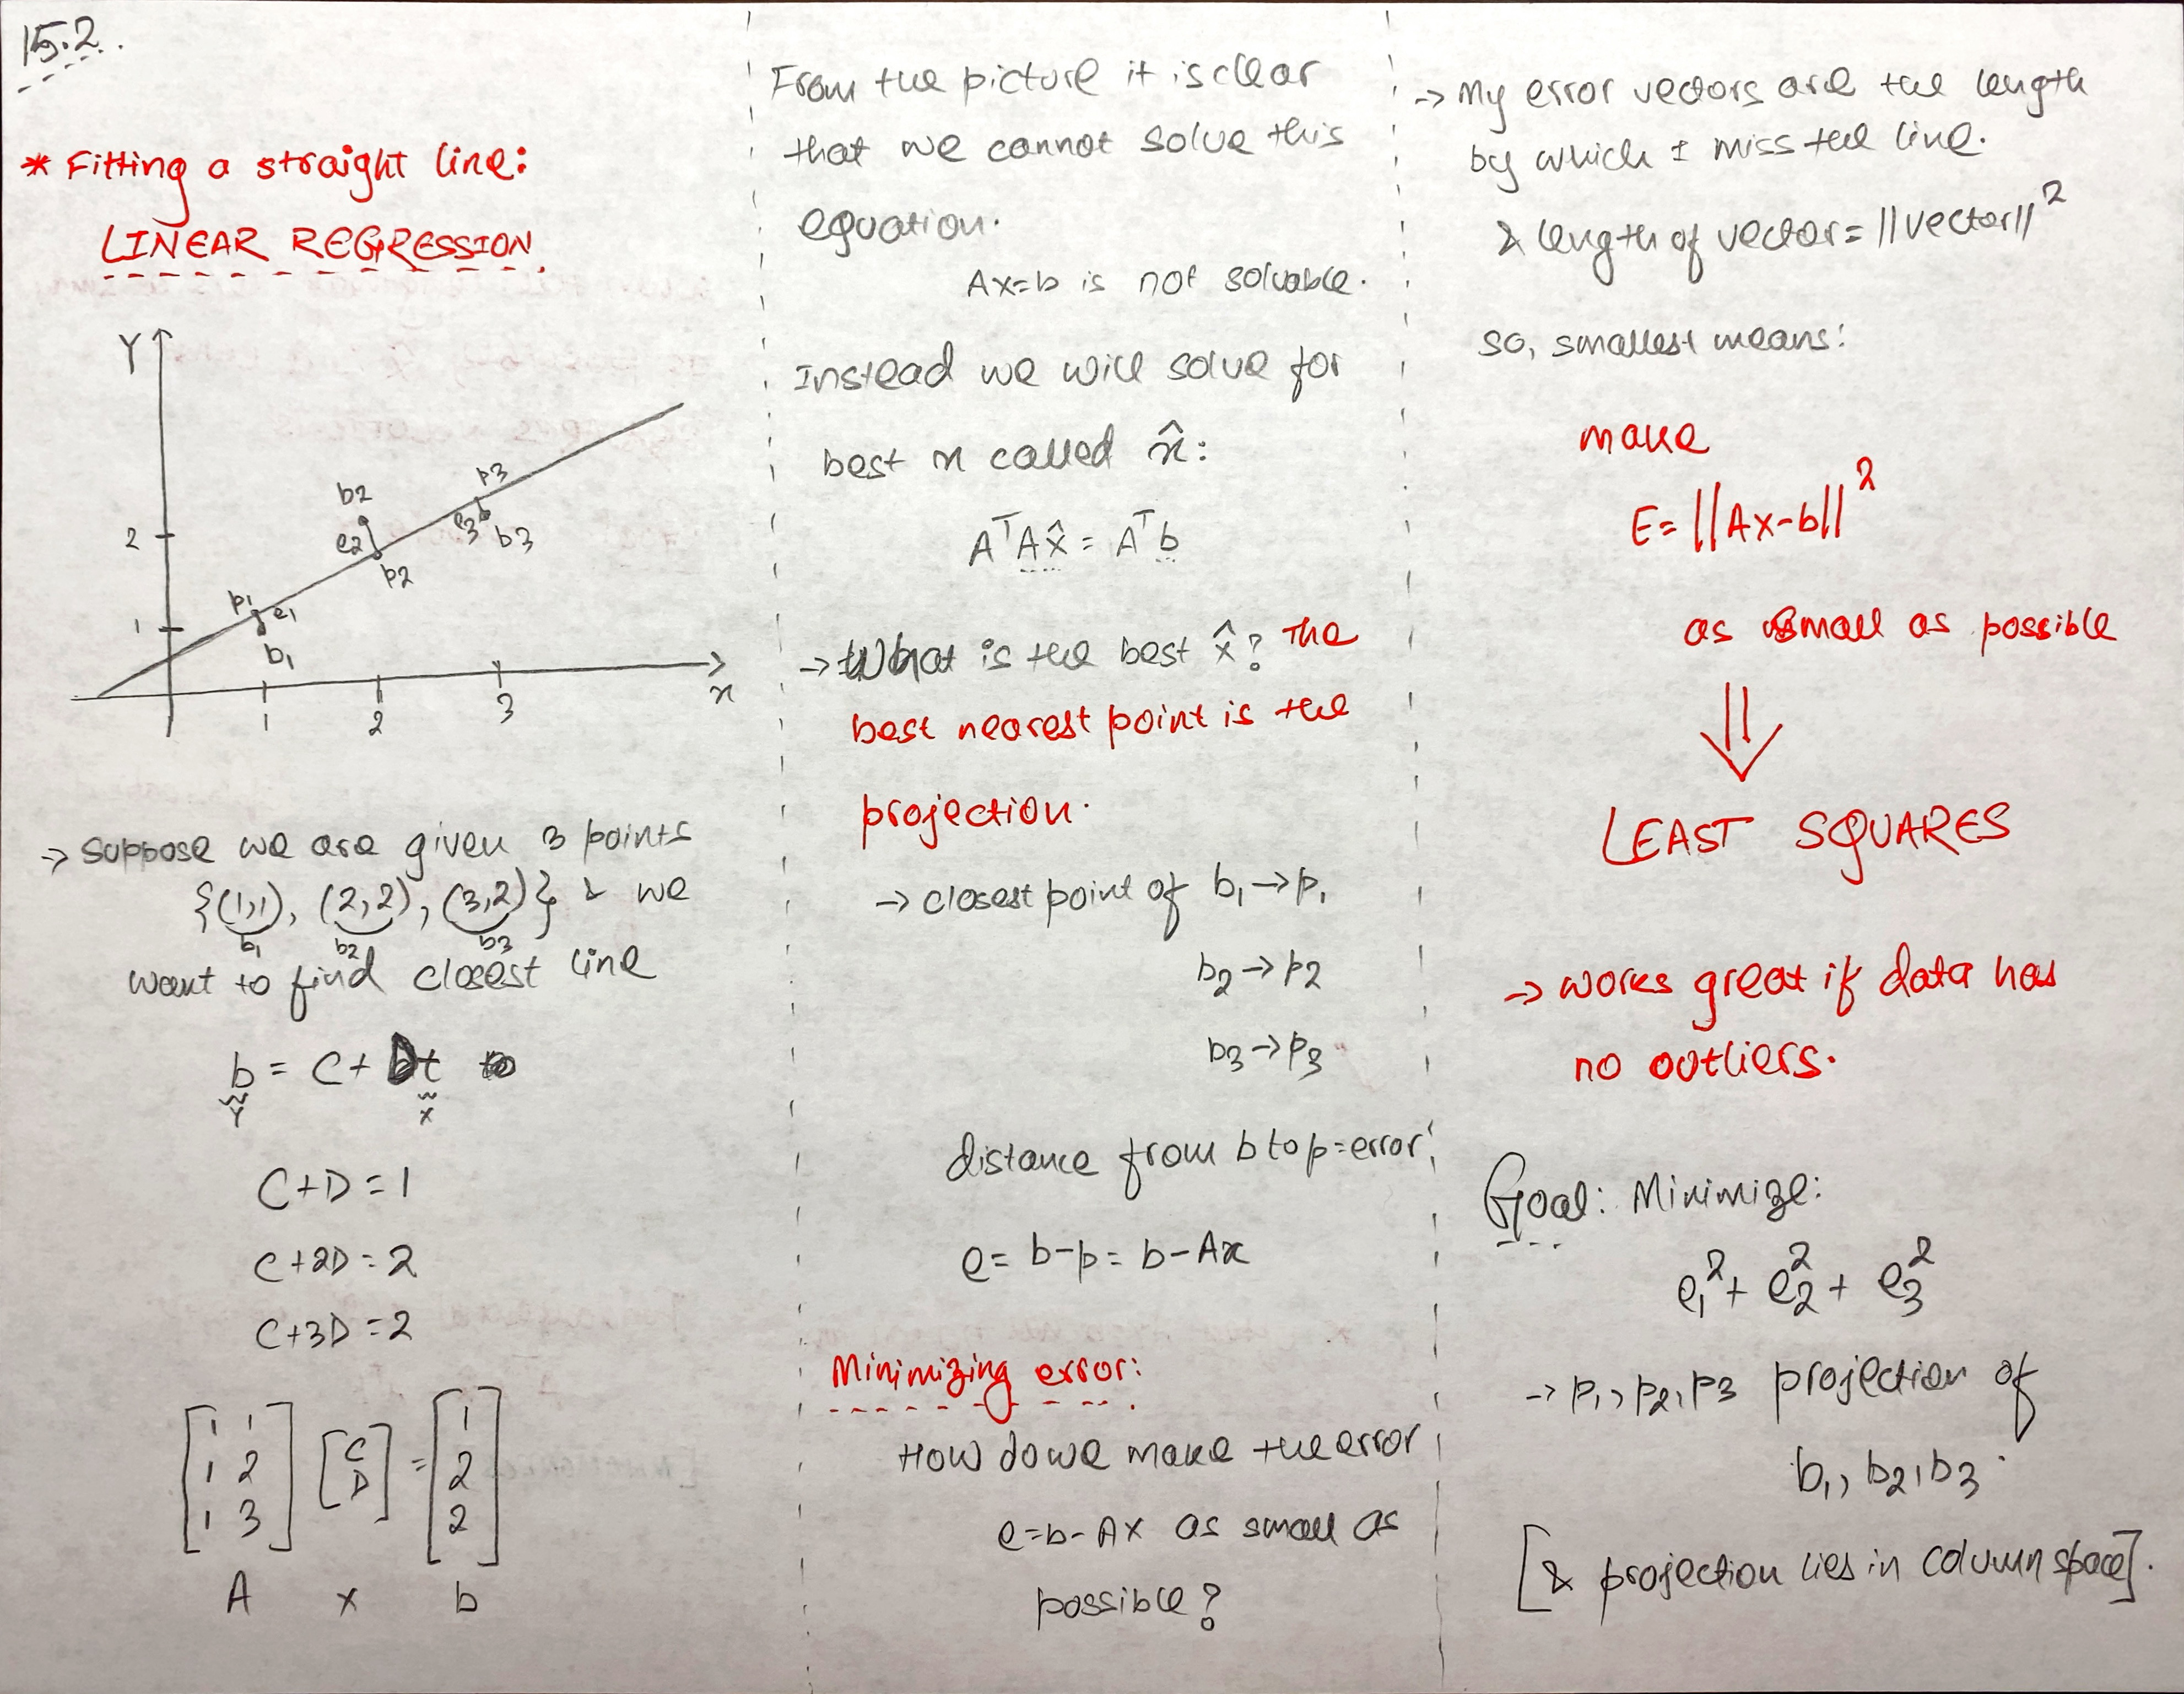 15.2.
* Fitting a straight line:
LINEAR REGRESSION.
Y
2
1
p1
e1
b1
b2
e2
p2
p3
e3
b3
1
2
3
x
→ Suppose we are given 3 points
{(1,1), (2,2), (3,2)} & we
b1 b2 b3
want to find closest line
b = C + Dt
Y X
C+D = 1
C+2D = 2
C+3D = 2
[1 1
1 2
1 3] [C
D] = [1
2
2]
A x b
From the picture it is clear
that we cannot solve this
equation.
Ax=b is not solvable.
Instead we will solve for
best x called x̂:
AᵀAx̂ = Aᵀb
→ What is the best x̂? The
best nearest point is the
projection.
→ closest point of b1 → p1
b2 → p2
b3 → p3
distance from b to p = error
e = b-p = b-Ax
Minimizing error:
How do we make the error
e=b-Ax as small as
possible?
→ My error vectors are the length
by which I miss the line.
& length of vector = ||vector||²
so, smallest means:
make
E= ||Ax-b||²
as small as possible
⇓
LEAST SQUARES
→ works great if data has
no outliers.
Goal: Minimize:
e1² + e2² + e3²
→ p1, p2, p3 projection of
b1, b2, b3.
[& projection lies in column space].